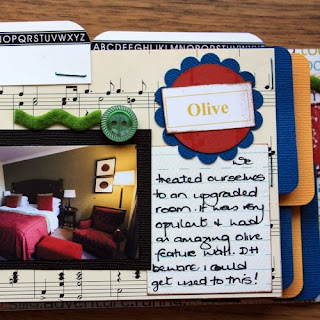 NOPQRSTUVWXYZ
ABCDEFGHIJKLMNOPQRSTUVWXYZ
Olive
We
treated ourselves
to an upgraded
room. It was very
opulent & had
an amazing olive
feature wall. DH
beware i could
get used to this!